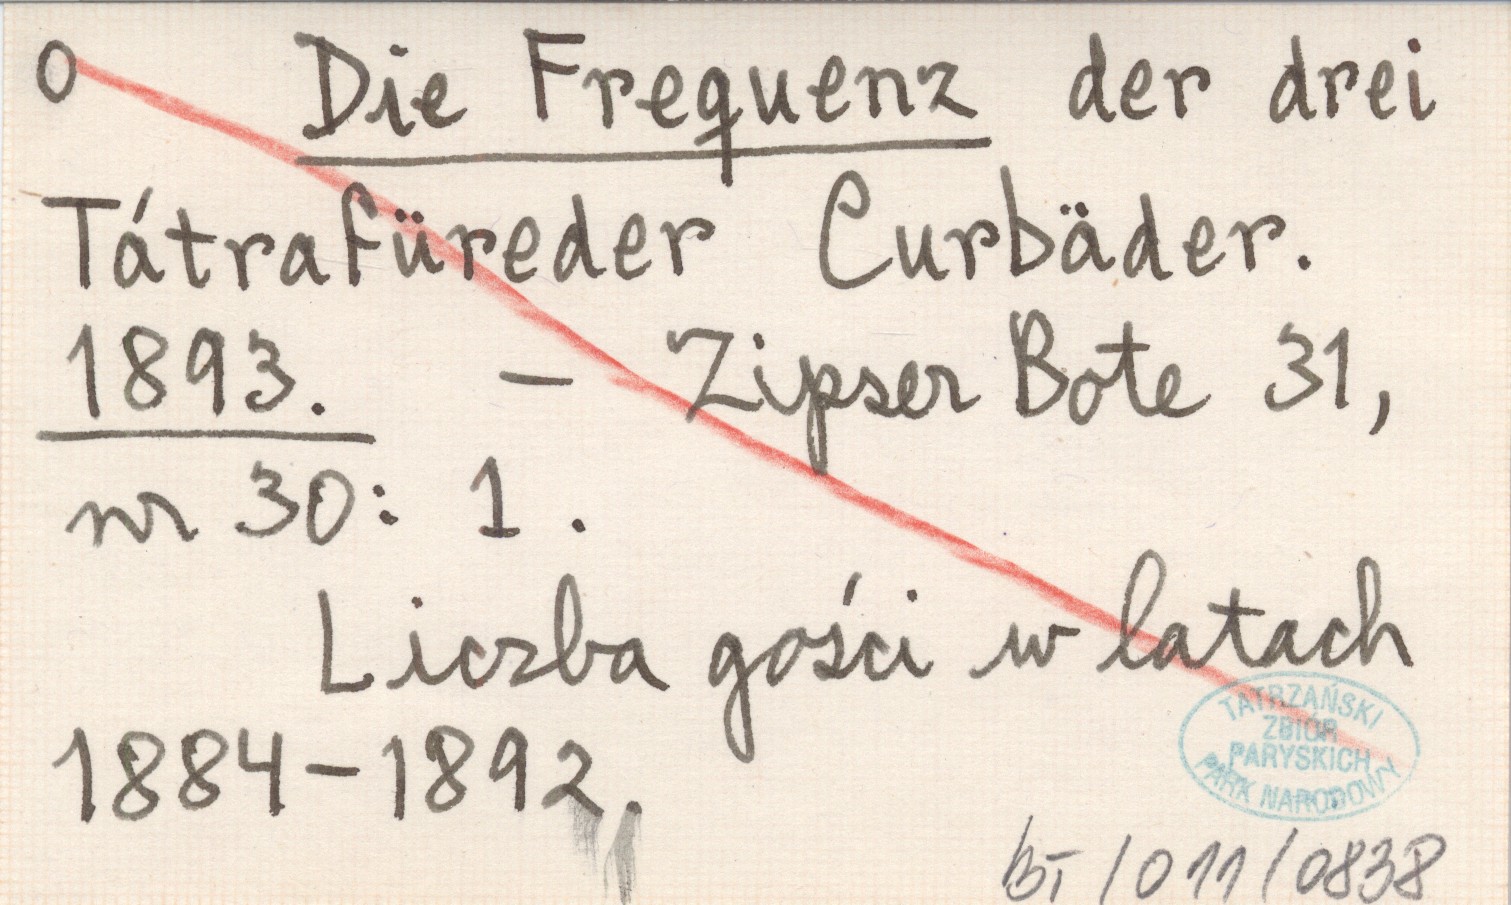 o Die Frequenz der drei
Tátrafüreder Curbäder.
1893. - Zipser Bote 31,
nr 30: 1.
Liczba gości w latach
1884-1892.
TATRZAŃSKI
ZBIÓR
PARYSKICH
PARK NARODOWY
BT/011/0838